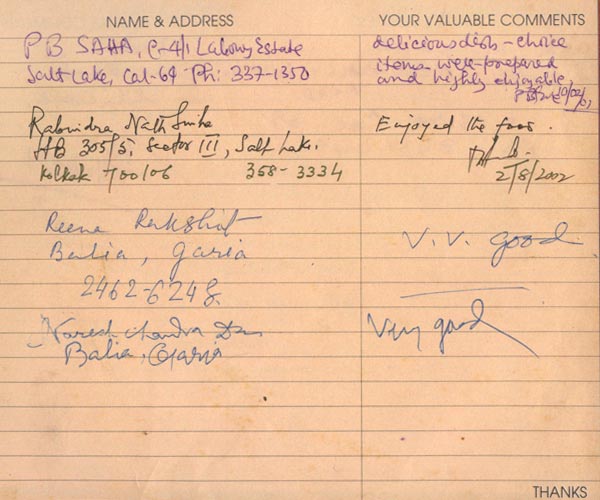 NAME & ADDRESS
YOUR VALUABLE COMMENTS
P B SAHA, C-4/1 Labony Estate
Salt Lake, Cal-64 Ph: 337-1350
delicious dish - choice
items were prepared
and highly enjoyable,
Rabindra Nath
HB 305/5, Sector III, Salt Lake.
Kolkata 700106 358-3334
Enjoyed the food.
2/8/2002
Reena Rakshit
Balia, Garia
2462-6248
V.V. good
Naresh Chandra Das
Balia, Garia
Very good
THANKS